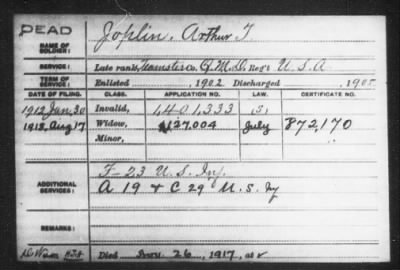 DEAD
NAME OF SOLDIER: Joplin, Arthur T.
SERVICE: Late rank, Teamster Co. Q.M.D. Reg't U.S.A
TERM OF SERVICE: Enlisted , 1902 Discharged , 190
DATE OF FILING. CLASS. APPLICATION NO. LAW. CERTIFICATE NO.
1912 Jan 30 Invalid, 1,401,333 S.
1918, Aug 17 Widow, 1127,004 July 872,170
Minor,
ADDITIONAL SERVICES: F-23 U.S. Inf.
A 19 + C 29 U.S. Inf
REMARKS:
Died Nov. 26, 1917, at